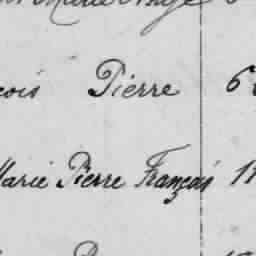 Marie Ange
cois Pierre 6
Marie Pierre François 11